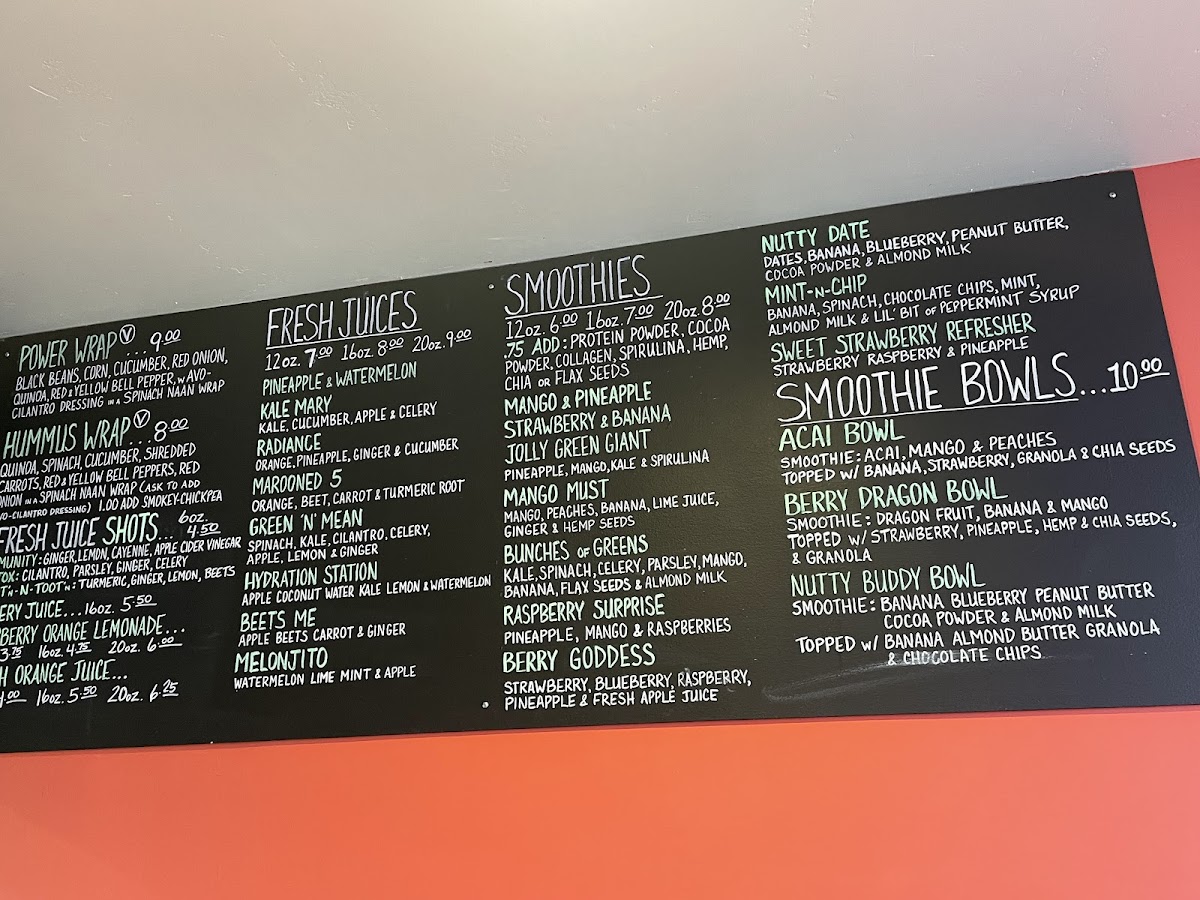 POWER WRAP Ⓥ ... 9.00
BLACK BEANS, CORN, CUCUMBER, RED ONION,
QUINOA, RED & YELLOW BELL PEPPER, w AVO-
CILANTRO DRESSING IN A SPINACH NAAN WRAP
HUMMUS WRAP Ⓥ ... 8.00
QUINOA, SPINACH, CUCUMBER, SHREDDED
CARROTS, RED & YELLOW BELL PEPPERS, RED
ONION IN A SPINACH NAAN WRAP (ASK TO ADD
VO-CILANTRO DRESSING) 1.00 ADD SMOKEY-CHICKPEA
FRESH JUICE SHOTS... 6oz. 4.50
MUNITY: GINGER, LEMON, CAYENNE, APPLE CIDER VINEGAR
TOX: CILANTRO, PARSLEY, GINGER, CELERY
-N-TOOT'N: TURMERIC, GINGER, LEMON, BEETS
ERY JUICE... 16oz. 5.50
BERRY ORANGE LEMONADE...
3.75 16oz. 4.75 20oz. 6.00
H ORANGE JUICE...
4.00 16oz. 5.50 20oz. 6.25
FRESH JUICES
12oz. 7.00 16oz. 8.00 20oz. 9.00
PINEAPPLE & WATERMELON
KALE MARY
KALE, CUCUMBER, APPLE & CELERY
RADIANCE
ORANGE, PINEAPPLE, GINGER & CUCUMBER
MAROONED 5
ORANGE, BEET, CARROT & TURMERIC ROOT
GREEN 'N' MEAN
SPINACH, KALE, CILANTRO, CELERY,
APPLE, LEMON & GINGER
HYDRATION STATION
APPLE COCONUT WATER KALE LEMON & WATERMELON
BEETS ME
APPLE BEETS CARROT & GINGER
MELONJITO
WATERMELON LIME MINT & APPLE
SMOOTHIES
12oz. 6.00 16oz. 7.00 20oz. 8.00
.75 ADD: PROTEIN POWDER, COCOA
POWDER, COLLAGEN, SPIRULINA, HEMP,
CHIA OR FLAX SEEDS
MANGO & PINEAPPLE
STRAWBERRY & BANANA
JOLLY GREEN GIANT
PINEAPPLE, MANGO, KALE & SPIRULINA
MANGO MUST
MANGO, PEACHES, BANANA, LIME JUICE,
GINGER & HEMP SEEDS
BUNCHES OF GREENS
KALE, SPINACH, CELERY, PARSLEY, MANGO,
BANANA, FLAX SEEDS & ALMOND MILK
RASPBERRY SURPRISE
PINEAPPLE, MANGO & RASPBERRIES
BERRY GODDESS
STRAWBERRY, BLUEBERRY, RASPBERRY,
PINEAPPLE & FRESH APPLE JUICE
NUTTY DATE
DATES, BANANA, BLUEBERRY, PEANUT BUTTER,
COCOA POWDER & ALMOND MILK
MINT-N-CHIP
BANANA, SPINACH, CHOCOLATE CHIPS, MINT,
ALMOND MILK & LIL' BIT OF PEPPERMINT SYRUP
SWEET STRAWBERRY REFRESHER
STRAWBERRY RASPBERRY & PINEAPPLE
SMOOTHIE BOWLS... 10.00
ACAI BOWL
SMOOTHIE: ACAI, MANGO & PEACHES
TOPPED w/ BANANA, STRAWBERRY, GRANOLA & CHIA SEEDS
BERRY DRAGON BOWL
SMOOTHIE: DRAGON FRUIT, BANANA & MANGO
TOPPED w/ STRAWBERRY, PINEAPPLE, HEMP & CHIA SEEDS,
& GRANOLA
NUTTY BUDDY BOWL
SMOOTHIE: BANANA BLUEBERRY PEANUT BUTTER
COCOA POWDER & ALMOND MILK
TOPPED w/ BANANA ALMOND BUTTER GRANOLA
& CHOCOLATE CHIPS